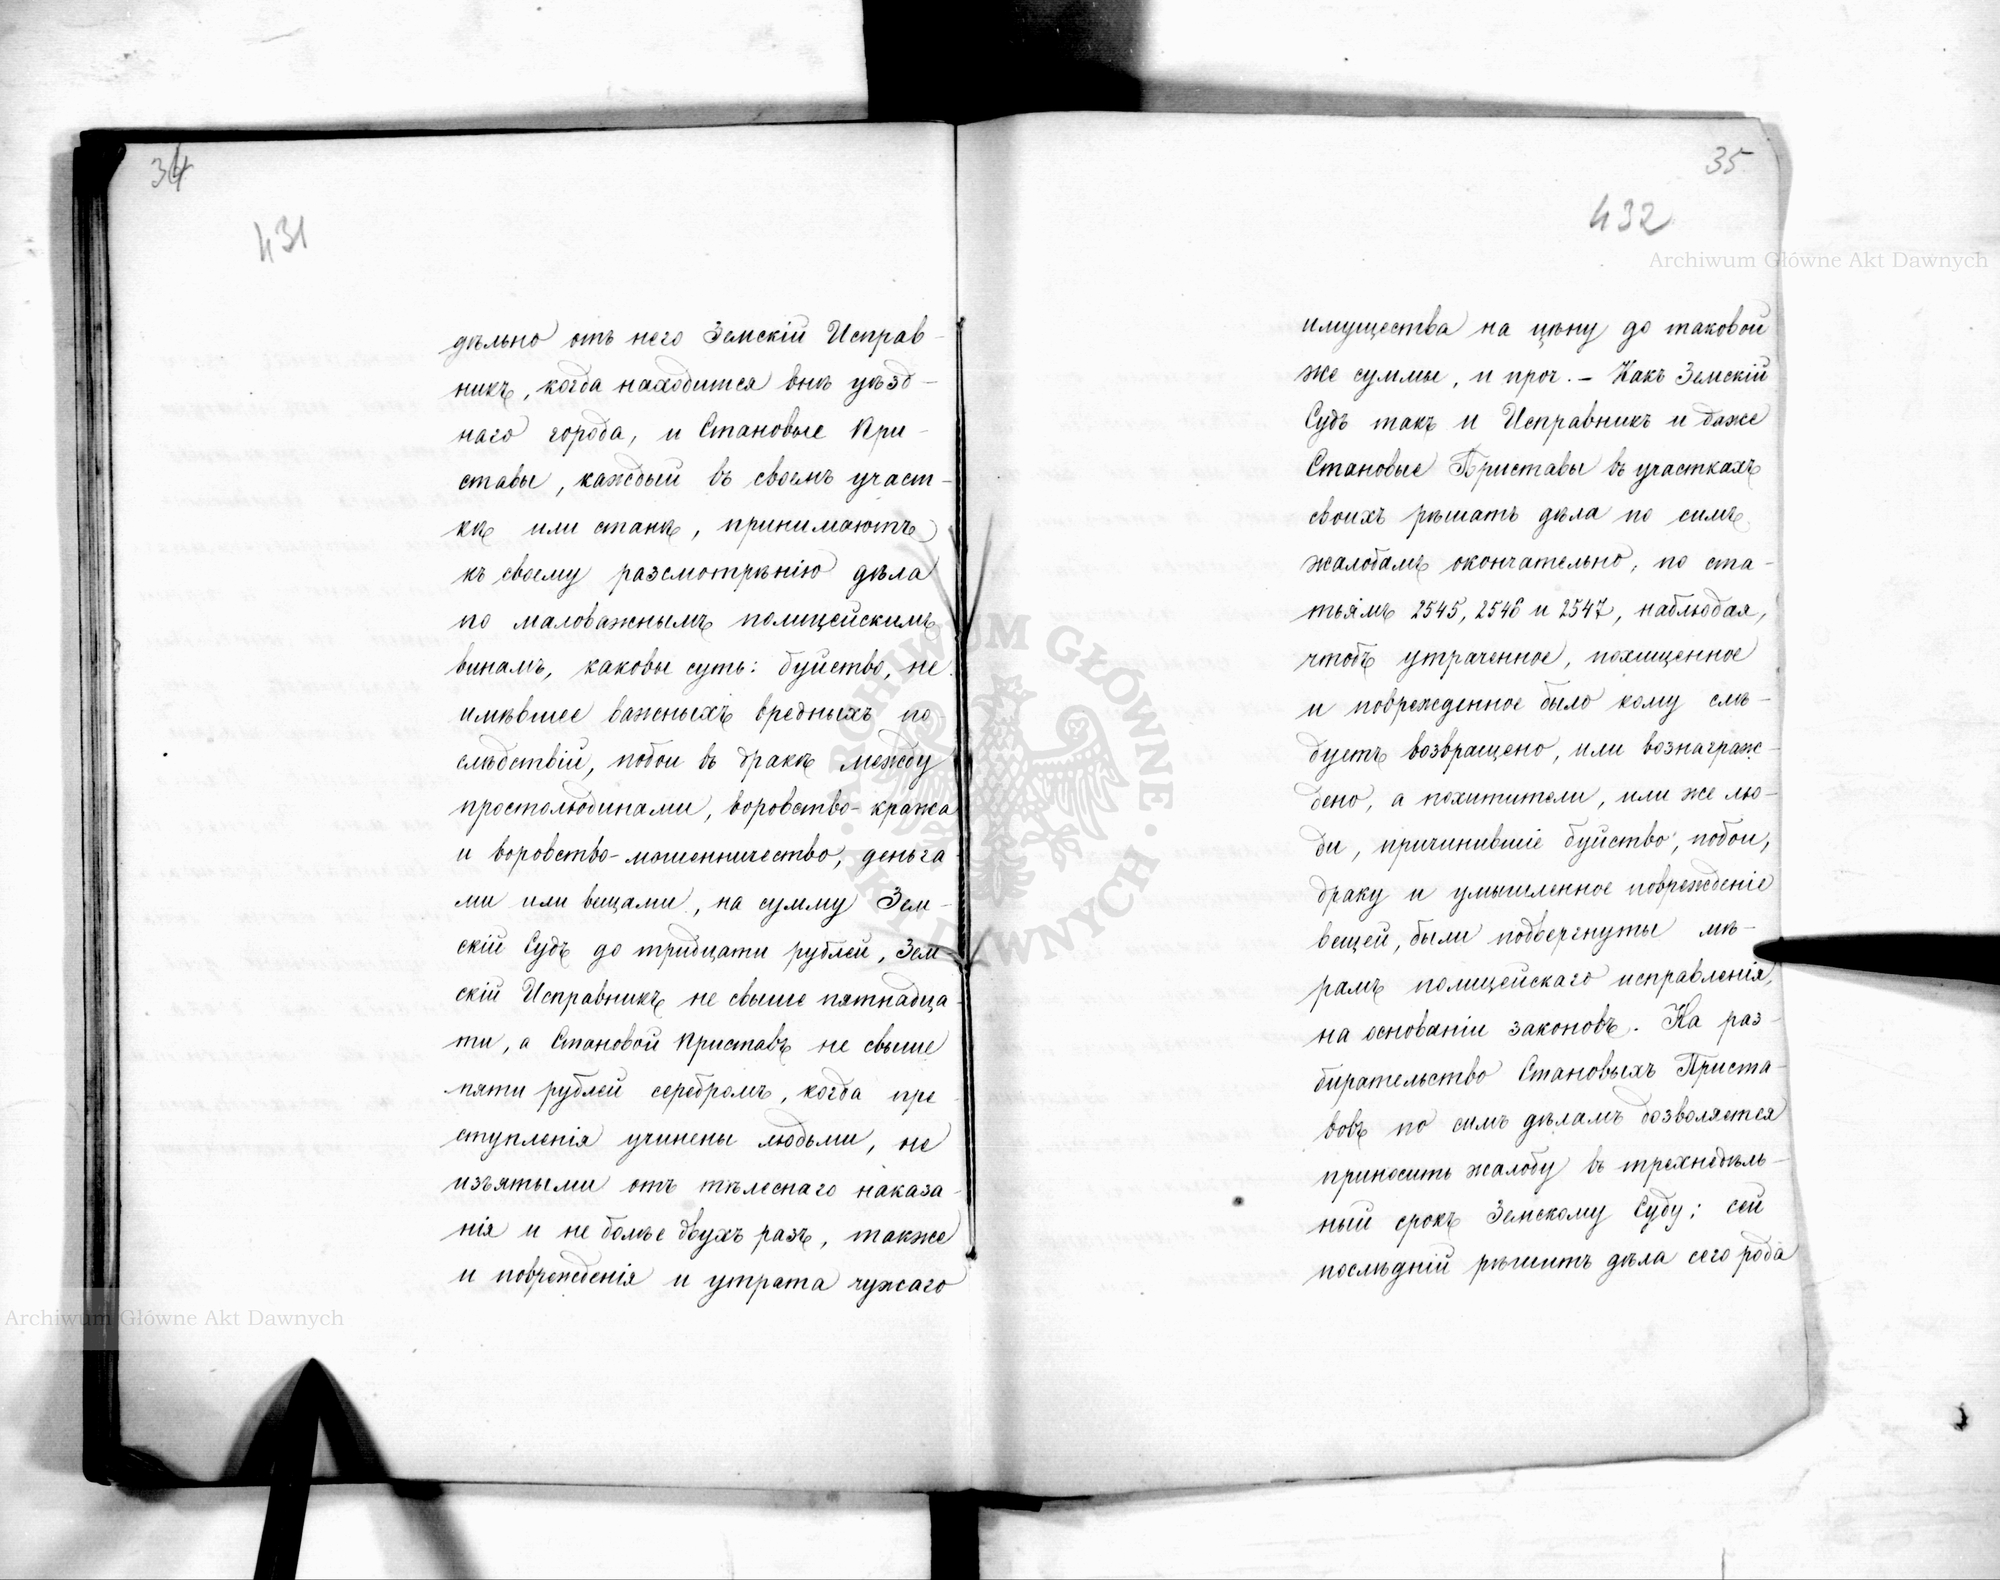 34
431
дѣльно отъ него Земскій Исправ-
никъ, когда находится внѣ уѣзд-
наго города, и Становые При-
ставы, каждый въ своемъ участ-
кѣ или станѣ, принимаютъ
къ своему разсмотрѣнію дѣла
по маловажнымъ полицейскимъ
винамъ, каковы суть: буйство, не
имѣвшее важныхъ вредныхъ по-
слѣдствій, побои въ дракѣ между
простолюдинами, воровство-кража
и воровство-мошенничество, деньга-
ми или вещами, на сумму Зем-
скій Судъ до тридцати рублей, Зем
скій Исправникъ не свыше пятнадца-
ти, а Становой Приставъ не свыше
пяти рублей серебромъ, когда пре-
ступленія учинены людьми, не
изъятыми отъ тѣлеснаго наказа-
нія и не болѣе двухъ разъ, также
и поврежденія и утрата чужаго
35
432
имущества на цѣну до таковой
же суммы, и проч. - Какъ Земскій
Судъ такъ и Исправникъ и даже
Становые Приставы въ участкахъ
своихъ рѣшатъ дѣла по симъ
жалобамъ окончательно, по ста-
тьямъ 2545, 2546 и 2547, наблюдая,
чтобъ утраченное, похищенное
и поврежденное было кому слѣ-
дуетъ возвращено, или вознаграж-
дено, а похитители, или же лю-
ди, причинившіе буйство, побои,
драку и умышленное поврежденіе
вещей, были подвергнуты мѣ-
рамъ полицейскаго исправленія,
на основаніи законовъ. На раз-
бирательство Становыхъ Приста-
вовъ по симъ дѣламъ дозволяется
приносить жалобу въ трехнедѣль-
ный срокъ Земскому Суду; сей
послѣдній рѣшитъ дѣла сего рода
Archiwum Główne Akt Dawnych
Archiwum Główne Akt Dawnych
ARCHIWUM GŁÓWNE AKT DAWNYCH